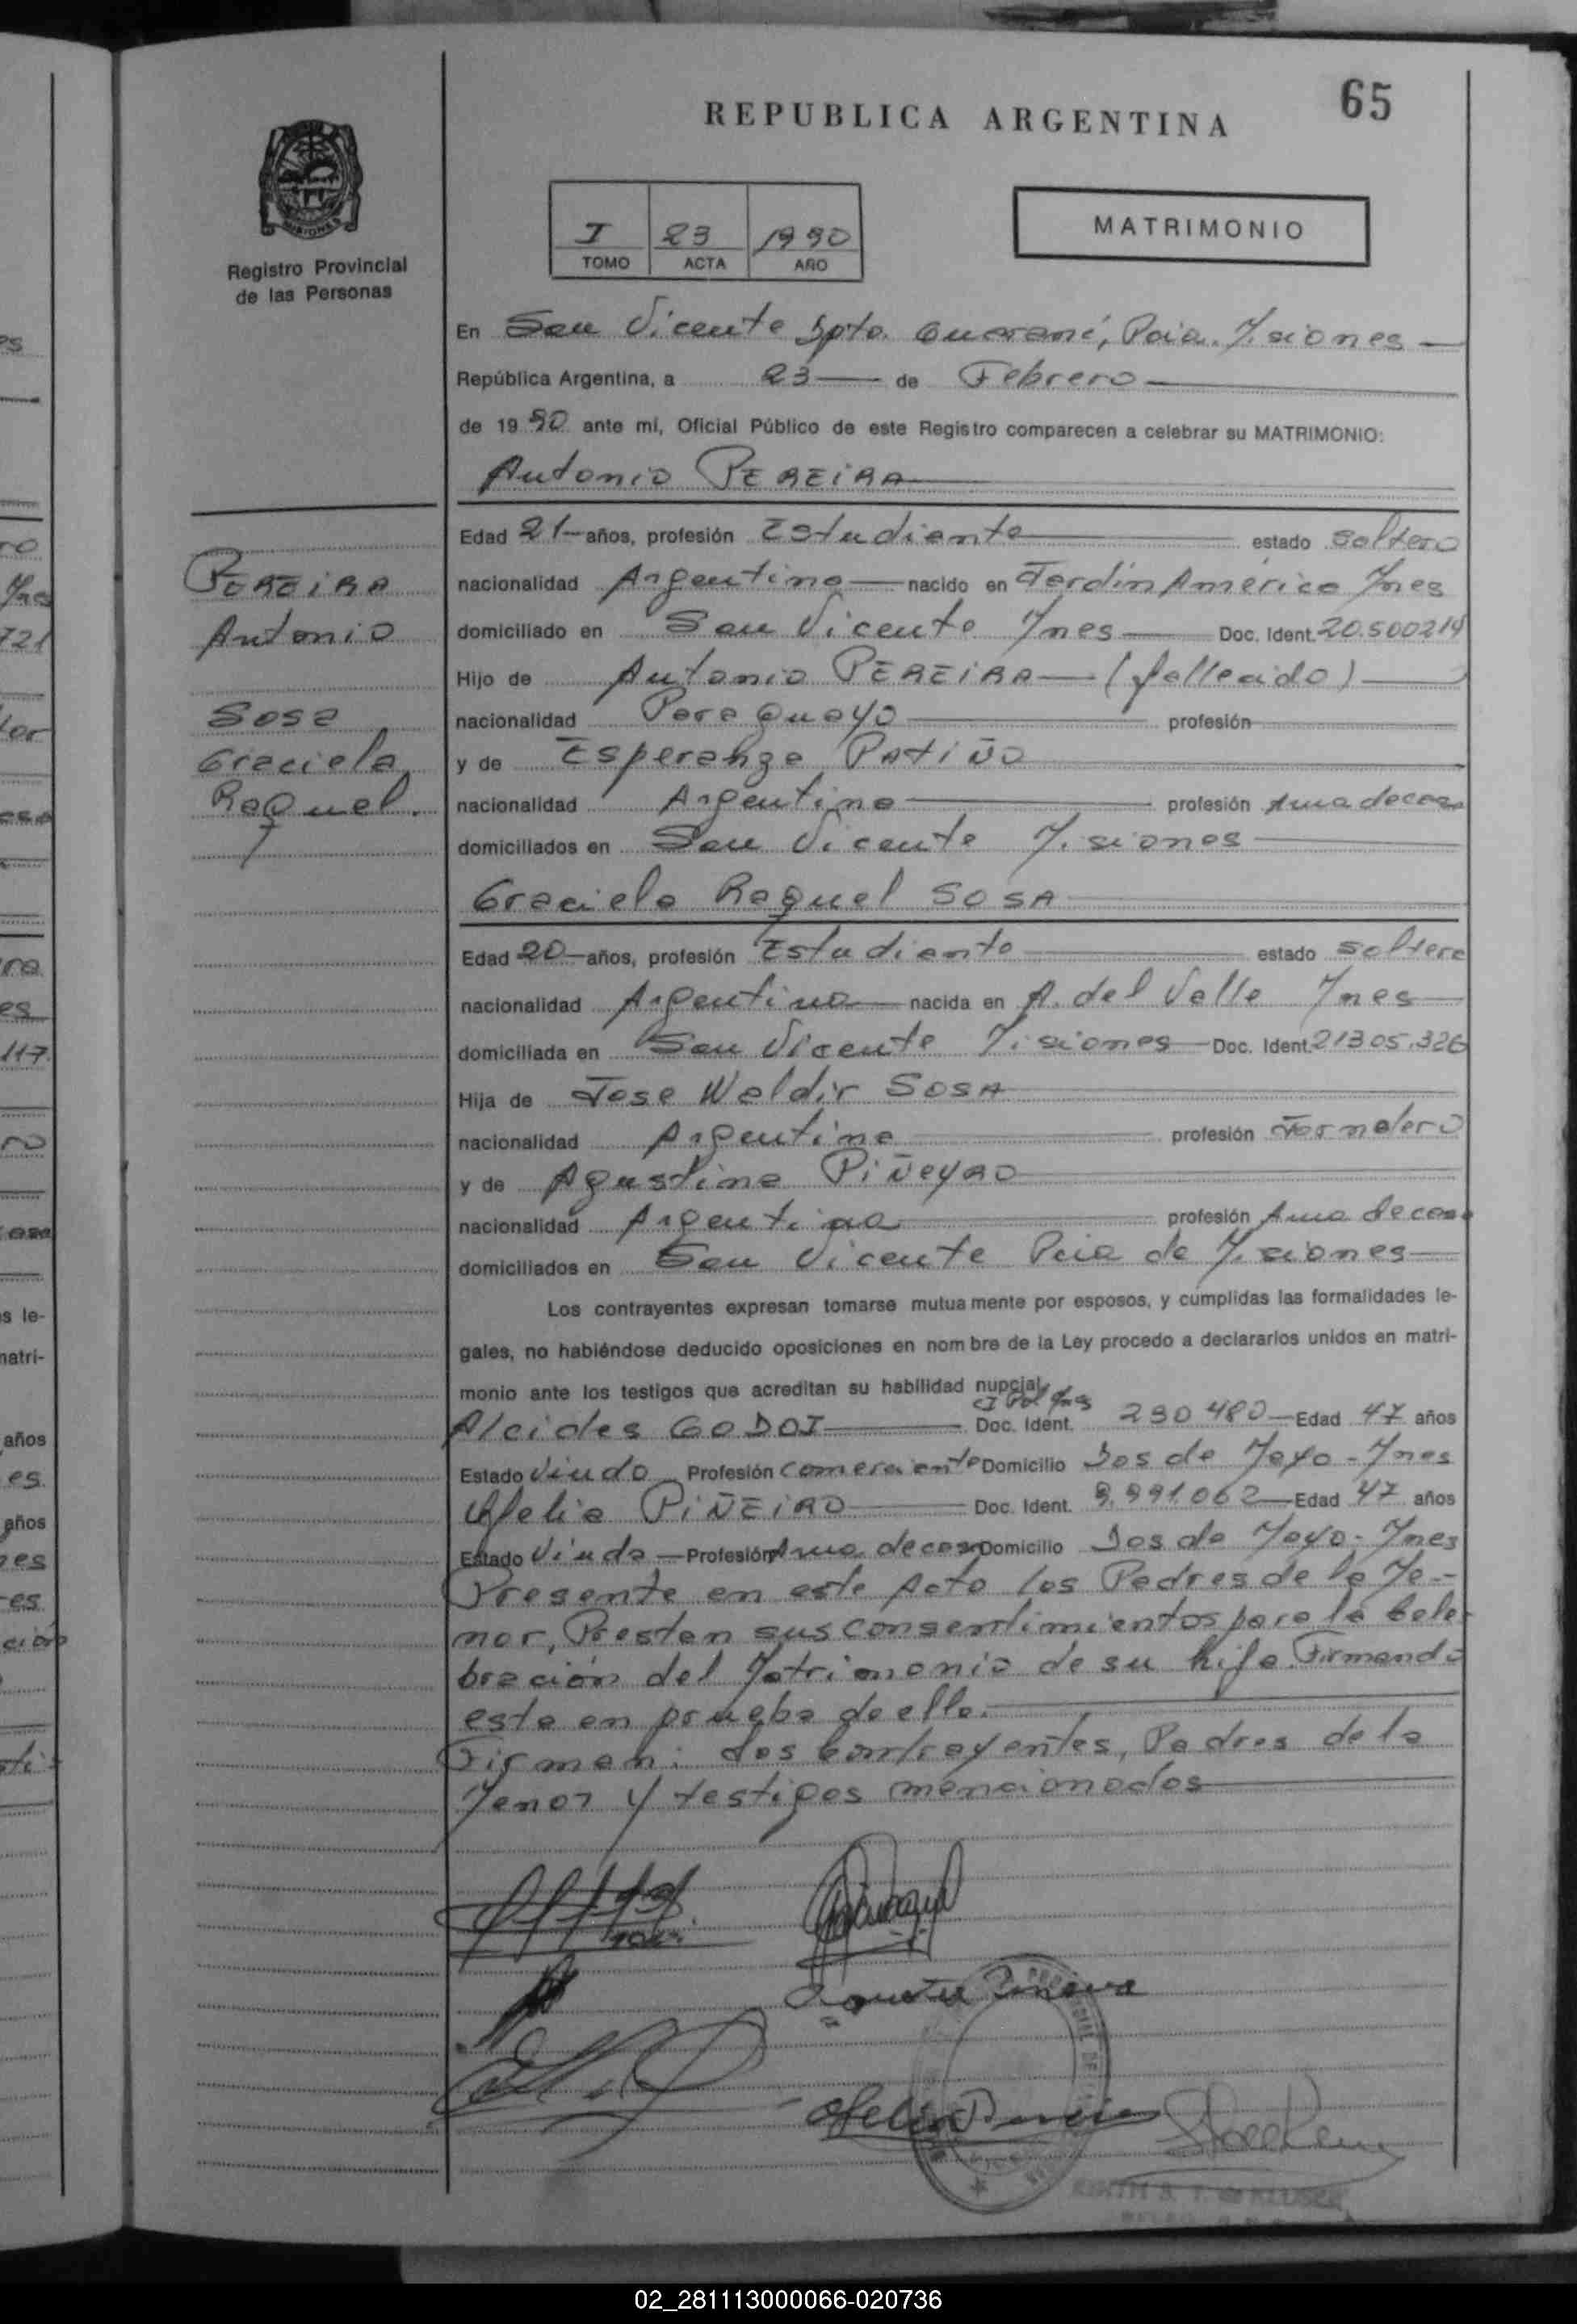 65
REPUBLICA ARGENTINA
MISIONES
Registro Provincial
de las Personas
I 23 1990
TOMO ACTA AÑO
MATRIMONIO
En San Vicente Dpto. Guaraní, Pcia. Misiones
República Argentina, a 23 de Febrero
de 1990 ante mi, Oficial Público de este Registro comparecen a celebrar su MATRIMONIO:
Antonio PEREiRA
PEREiRA
Antonio
Sosa
Graciela
Raquel.
Edad 21 años, profesión Estudiante estado soltero
nacionalidad Argentina nacido en Jardín América Mnes
domiciliado en San Vicente Mnes Doc. Ident. 20.500214
Hijo de Antonio PEREiRA (fallecido)
nacionalidad Paraguayo profesión
y de Esperanza PATiÑO
nacionalidad Argentina profesión Ama de casa
domiciliados en San Vicente Misiones
Graciela Raquel SOSA
Edad 20 años, profesión Estudiante estado soltera
nacionalidad Argentina nacida en A. del Valle Mnes
domiciliada en San Vicente Misiones Doc. Ident. 21305.326
Hija de Jose Waldir SOSA
nacionalidad Argentina profesión Jornalero
y de Agustina PiÑeyRO
nacionalidad Argentina profesión Ama de casa
domiciliados en San Vicente Pcia de Misiones
Los contrayentes expresan tomarse mutuamente por esposos, y cumplidas las formalidades le-
gales, no habiéndose deducido oposiciones en nombre de la Ley procedo a declararlos unidos en matri-
monio ante los testigos que acreditan su habilidad nupcial,
CI Pol Mnes
Alcides GODOI Doc. Ident. 230480 Edad 47 años
Estado Viudo Profesión comerciante Domicilio Dos de Mayo - Mnes
Ofelia PiÑEiRO Doc. Ident. 9.991.062 Edad 47 años
Estado Viuda Profesión Ama de casa Domicilio Dos de Mayo - Mnes
Presente en este Acto los Padres de la Me-
nor, Prestan sus consentimientos para la Cele-
bración del Matrimonio de su hija. Firmando
esta en prueba de ello.
Firman: Los Contrayentes, Padres de la
Menor y testigos mencionados
02_281113000066-020736